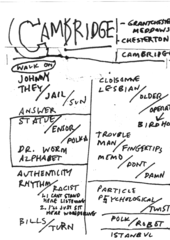 CAMBRIDGE
- GRANTCHESTER
MEADOWS
- CHESTERTON
CAMBRIDGE
WALK ON
JOHNNY
THEY
JAIL / SUN
ANSWER
STATUE
ENSOR
POLKA
DR. WORM
ALPHABET
AUTHENTICITY
RHYTHM
RACIST
1. I CAN'T STAND
HERE LISTENING
2. I'M JUST SIT
HERE WONDERING
BILLS / TURN
CLOISONNE
LESBIAN
OLDER
OPERAT
BIRDHO
TROUBLE
MAN / FINGERTIPS
MEMO / DON'T
DAMN
PARTICLE
PSYCHOLOGICAL
TWIST
POLK / ROBOT
ISTANBUL